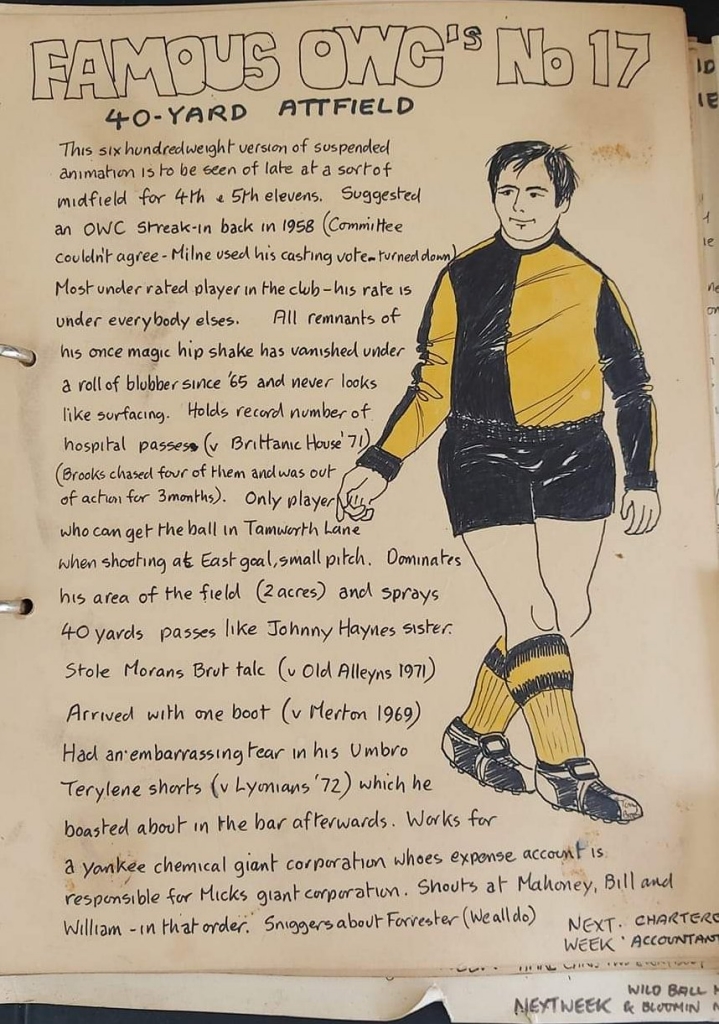 FAMOUS OWC's No 17
40-YARD ATTFIELD
This six hundredweight version of suspended
animation is to be seen of late at a sort of
midfield for 4th & 5th elevens. Suggested
an OWC Streak-in back in 1958 (Committee
couldn't agree - Milne used his casting vote - turned down)
Most under rated player in the club - his rate is
under everybody elses. All remnants of
his once magic hip shake has vanished under
a roll of blubber since '65 and never looks
like surfacing. Holds record number of
hospital passes (v Brittanic House '71)
(Brooks chased four of them and was out
of action for 3 months). Only player
who can get the ball in Tamworth Lane
when shooting at East goal, small pitch. Dominates
his area of the field (2 acres) and sprays
40 yards passes like Johnny Haynes sister.
Stole Morans Brut talc (v Old Alleyns 1971)
Arrived with one boot (v Merton 1969)
Had an embarrassing tear in his Umbro
Terylene shorts (v Lyonians '72) which he
boasted about in the bar afterwards. Works for
a yankee chemical giant corporation whoes expense account is
responsible for Micks giant corporation. Shouts at Mahoney, Bill and
William - in that order. Sniggers about Forrester (We all do)
NEXT. CHARTERE
WEEK ACCOUNTAN
WILD BALL
NEXT WEEK & BLOOMIN